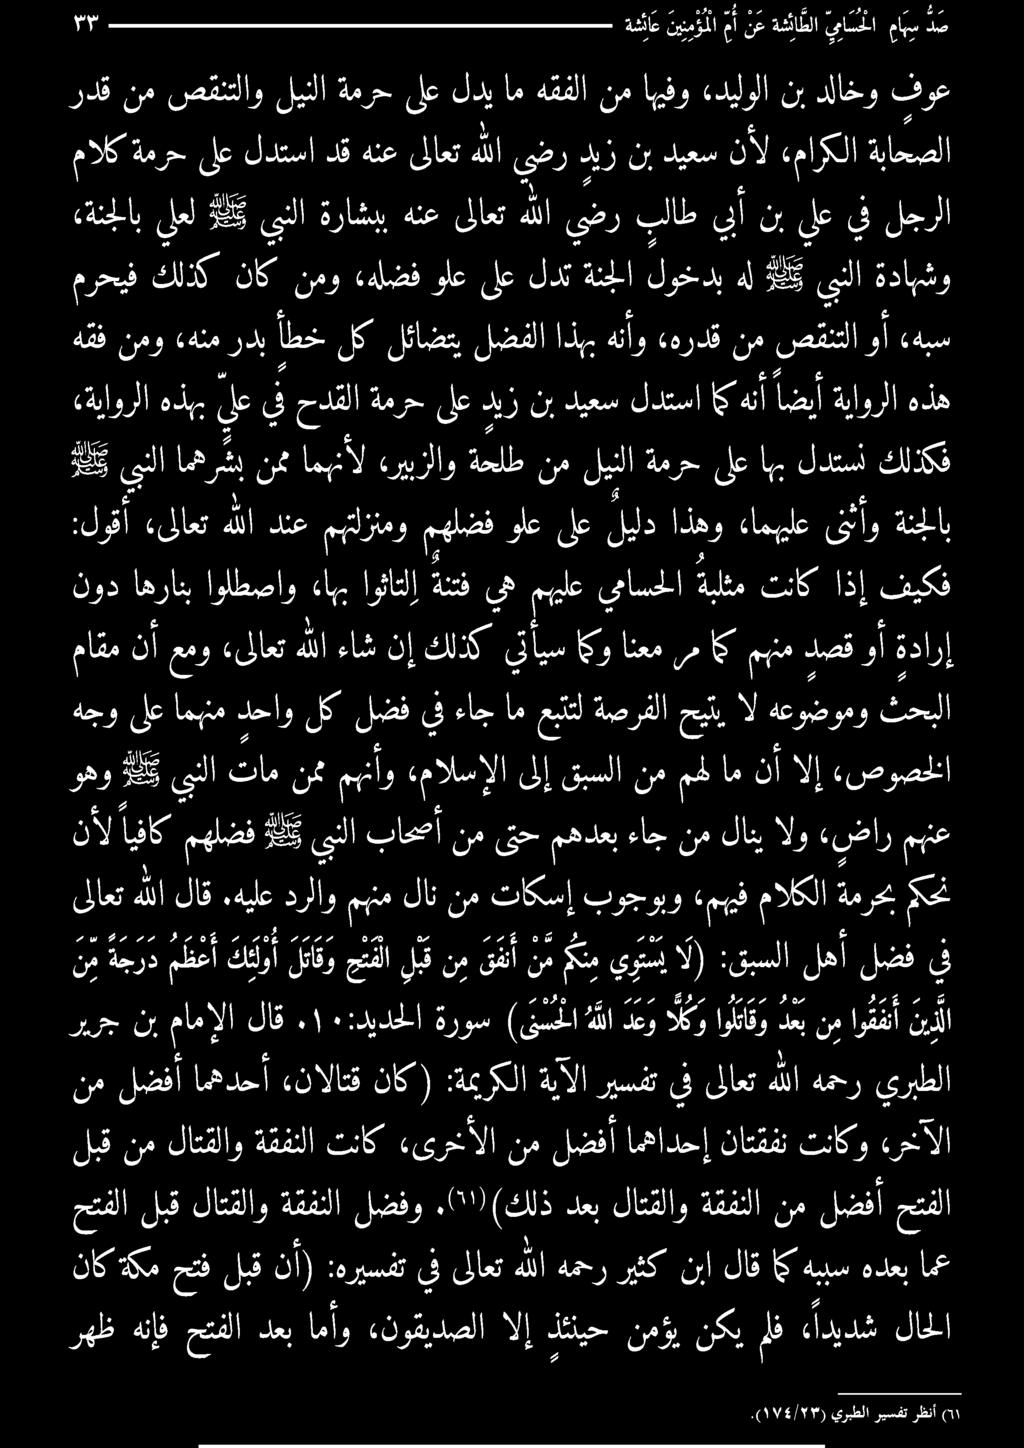 صَدُّ سِهَامِ الْحُسَامِيِّ الطَّائِشة عَنْ أُمِّ الْمُؤْمِنِينَ عَائِشة ٣٣
عوفٍ وخالد بن الوليد، وفيها من الفقه ما يدل على حرمة النيل والتنقص من قدر
الصحابة الكرام، لأن سعيد بن زيدٍ رضي الله تعالى عنه قد استدل على حرمة كلام
الرجل في علي بن أبي طالبٍ رضي الله تعالى عنه ببشارة النبي ﷺ لعلي بالجنة،
وشهادة النبي ﷺ له بدخول الجنة تدل على علو فضله، ومن كان كذلك فيحرم
سبه، أو التنقص من قدره، وأنه بهذا الفضل يتضائل كل خطأٍ بدر منه، ومن فقه
هذه الرواية أيضاً أنه كما استدل سعيد بن زيدٍ على حرمة القدح في عليٍّ بهذه الرواية،
فكذلك نستدل بها على حرمة النيل من طلحة والزبير، لأنهما ممن بشرهما النبي ﷺ
بالجنة وأثنى عليهما، وهذا دليلٌ على علو فضلهم ومنزلتهم عند الله تعالى، أقول:
فكيف إذا كانت مثلبةُ الحسامي عليهم هي فتنةٌ اِلتاثوا بها، واصطلوا بنارها دون
إرادةٍ أو قصدٍ منهم كما مر معنا وكما سيأتي كذلك إن شاء الله تعالى، ومع أن مقام
البحث وموضوعه لا يتيح الفرصة لتتبع ما جاء في فضل كل واحدٍ منهما على وجه
الخصوص، إلا أن ما لهم من السبق إلى الإسلام، وأنهم ممن مات النبي ﷺ وهو
عنهم راضٍ، ولا ينال من جاء بعدهم حتى من أصحاب النبي ﷺ فضلهم كافياً لأن
نحكم بحرمة الكلام فيهم، وبوجوب إسكات من نال منهم والرد عليه. قال الله تعالى
في فضل أهل السبق: (لَا يَسْتَوِي مِنكُم مَّنْ أَنفَقَ مِن قَبْلِ الْفَتْحِ وَقَاتَلَ أُوْلَئِكَ أَعْظَمُ دَرَجَةً مِّنَ
الَّذِينَ أَنفَقُوا مِن بَعْدُ وَقَاتَلُوا وَكُلًّا وَعَدَ اللَّهُ الْحُسْنَى) سورة الحديد:١٠. قال الإمام بن جرير
الطبري رحمه الله تعالى في تفسير الآية الكريمة: (كان قتالان، أحدهما أفضل من
الآخر، وكانت نفقتان إحداهما أفضل من الأخرى، كانت النفقة والقتال من قبل
الفتح أفضل من النفقة والقتال بعد ذلك)(٦١). وفضل النفقة والقتال قبل الفتح
عما بعده سببه كما قال ابن كثير رحمه الله تعالى في تفسيره: (أن قبل فتح مكة كان
الحال شديداً، فلم يكن يؤمن حينئذٍ إلا الصديقون، وأما بعد الفتح فإنه ظهر
٦١) أنظر تفسير الطبري (١٧٤/٢٣).